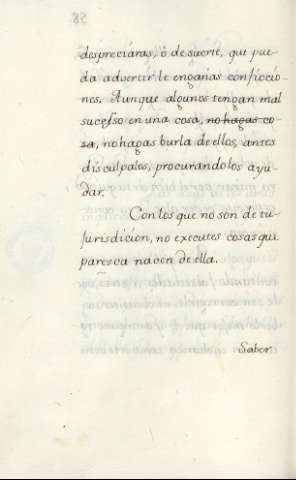 despreciáras, ó de suerte, qui pue-
da advertir le engañas con ficcio-
nes. Aunque algunos tengan mal
sucesso en una cosa, no hagas co-
sa, no hagas burla de ellos, antes
disculpales, procurandolos ayu-
dar.
Con los que no són de tu-
Jurisdicion, no executes cosas qui
paresca nacen de ella.
Saber